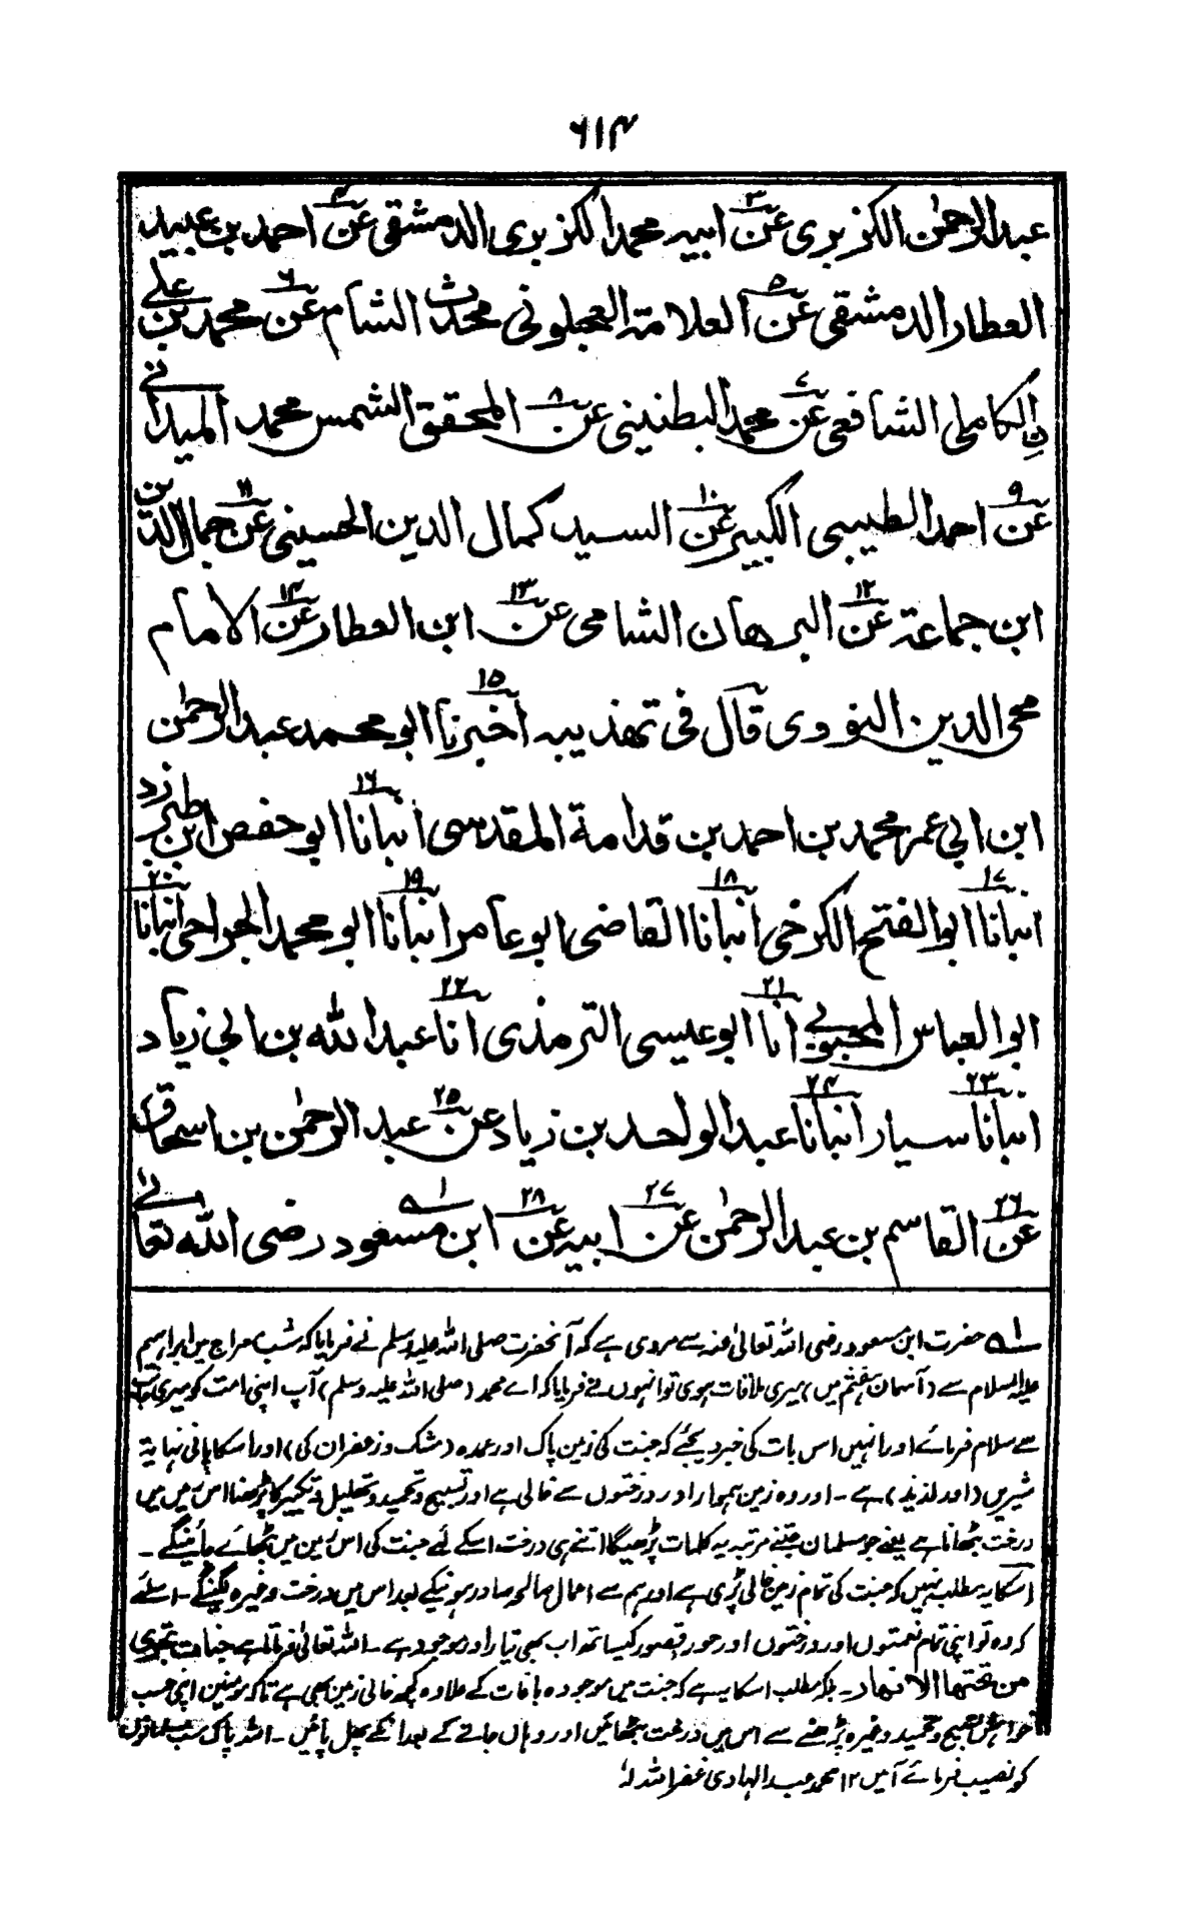 ۶۱۴
عبدالرحمٰن الکزبری عن۳ ابیہ محمد الکزبری الدمشقی عن۴ احمد بن عبید
العطار الدمشقی عن۵ العلامۃ العجلونی محدث الشام عن۶ محمد بن علی
ن الکاملی الشافعی عن۷ محمد البطنینی عن۸ المحقق الشمس محمد المیدانی
عن۹ احمد الطیبی الکبیر عن۱۰ السید کمال الدین الحسینی عن۱۱ جمال الدین
ابن جماعۃ عن۱۲ البرھان الشامی عن۱۳ ابن العطار عن۱۴ الامام
محی الدین النووی قال فی تھذیبہ اخبرنا۱۵ ابو محمد عبدالرحمٰن
ابن ابی عمر محمد بن احمد بن قدامۃ المقدسی انبانا۱۶ ابو حفص ابن طبرزد
انبانا۱۷ ابو الفتح الکرخی انبانا۱۸ القاضی ابو عامر انبانا۱۹ ابو محمد الجراحی انبانا۲۰
ابو العباس المحبوبی انا۲۱ ابو عیسی الترمذی انا۲۲ عبد اللہ بن ابی زیاد
انبانا۲۳ سیار انبانا۲۴ عبد الواحد بن زیاد عن۲۵ عبد الرحمٰن بن اسحاق
عن۲۶ القاسم بن عبد الرحمٰن عن۲۷ ابیہ عن۲۸ ابن مسعود۱؎ رضی اللہ تعالی
۱؎ حضرت ابن مسعود رضی اللہ تعالیٰ عنہ سے مروی ہے کہ آنحضرت صلی اللہ علیہ وسلم نے فرمایا کہ شب معراج میں ابراہیم
علیہ السلام سے (آسمان ہفتم میں) میری ملاقات ہوی تو انہوں نے فرمایا کہ اے محمد (صلی اللہ علیہ وسلم) آپ اپنی امت کو میری جانب
سے سلام فرمائے اور انہیں اس بات کی خبر دیجئے کہ جنت کی زمین پاک اور عمدہ (مشک و زعفران کی) اور اسکا پانی نہایۃ
شیریں (اور لذیذ) ہے ۔ اور وہ زمین ہموار اور درختوں سے خالی ہے اور تسبیح و تحمید و تھلیل و تکبیر کا پڑھنا اس میں
درخت بٹھانا ہے یعنے جو مسلمان جتنے مرتبہ یہ کلمات پڑھیگا اتنے ہی درخت اسکے لئے جنت کی اس زمین میں بٹھائے جائینگے ۔
اسکا یہ مطلب نہیں کہ جنت کی تمام زمین خالی پڑی ہے اور ہم سے اعمال صالحہ صادر ہونیکے بعد اس میں درخت وغیرہ لگینگے ۔ اسلئے
کہ وہ تو اپنی تمام نعمتوں اور درختوں اور حور و قصور کیساتھ اب بھی تیار اور موجود ہے ۔ اللہ تعالیٰ فرماتا ہے جنات تجری
من تحتھا الانھار ۔ بلکہ مطلب اسکا یہ ہے کہ جنت میں موجودہ باغات کے علاوہ کچھ خالی زمین بھی ہے تاکہ مومنین اپنی حسب
خواہش تسبیح و تحمید وغیرہ پڑھنے سے اس میں درخت بٹھائیں اور وہاں جانے کے بعد انکے پھل پائیں ۔ اللہ پاک سب مسلمانوں
کو نصیب فرمائے آمین ۱۲ محمد عبد الہادی غفر اللہ لہٗ